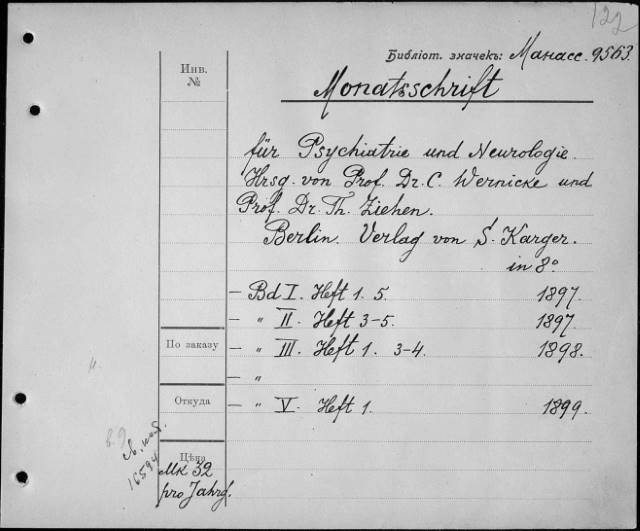 122
Библіот. значекъ: Манасс. 9563.
Инв.
№
Monatsschrift
für Psychiatrie und Neurologie.
Hrsg. von Prof. Dr. C. Wernicke und
Prof. Dr. Th. Ziehen.
Berlin. Verlag von S. Karger.
in 8°
— Bd I. Heft 1. 5. 1897.
— " II. Heft 3-5. 1897.
По заказу
— " III. Heft 1. 3-4. 1898.
— "
Откуда
— " V. Heft 1. 1899.
16594
Цѣна
Mk 32
pro Jahrg.